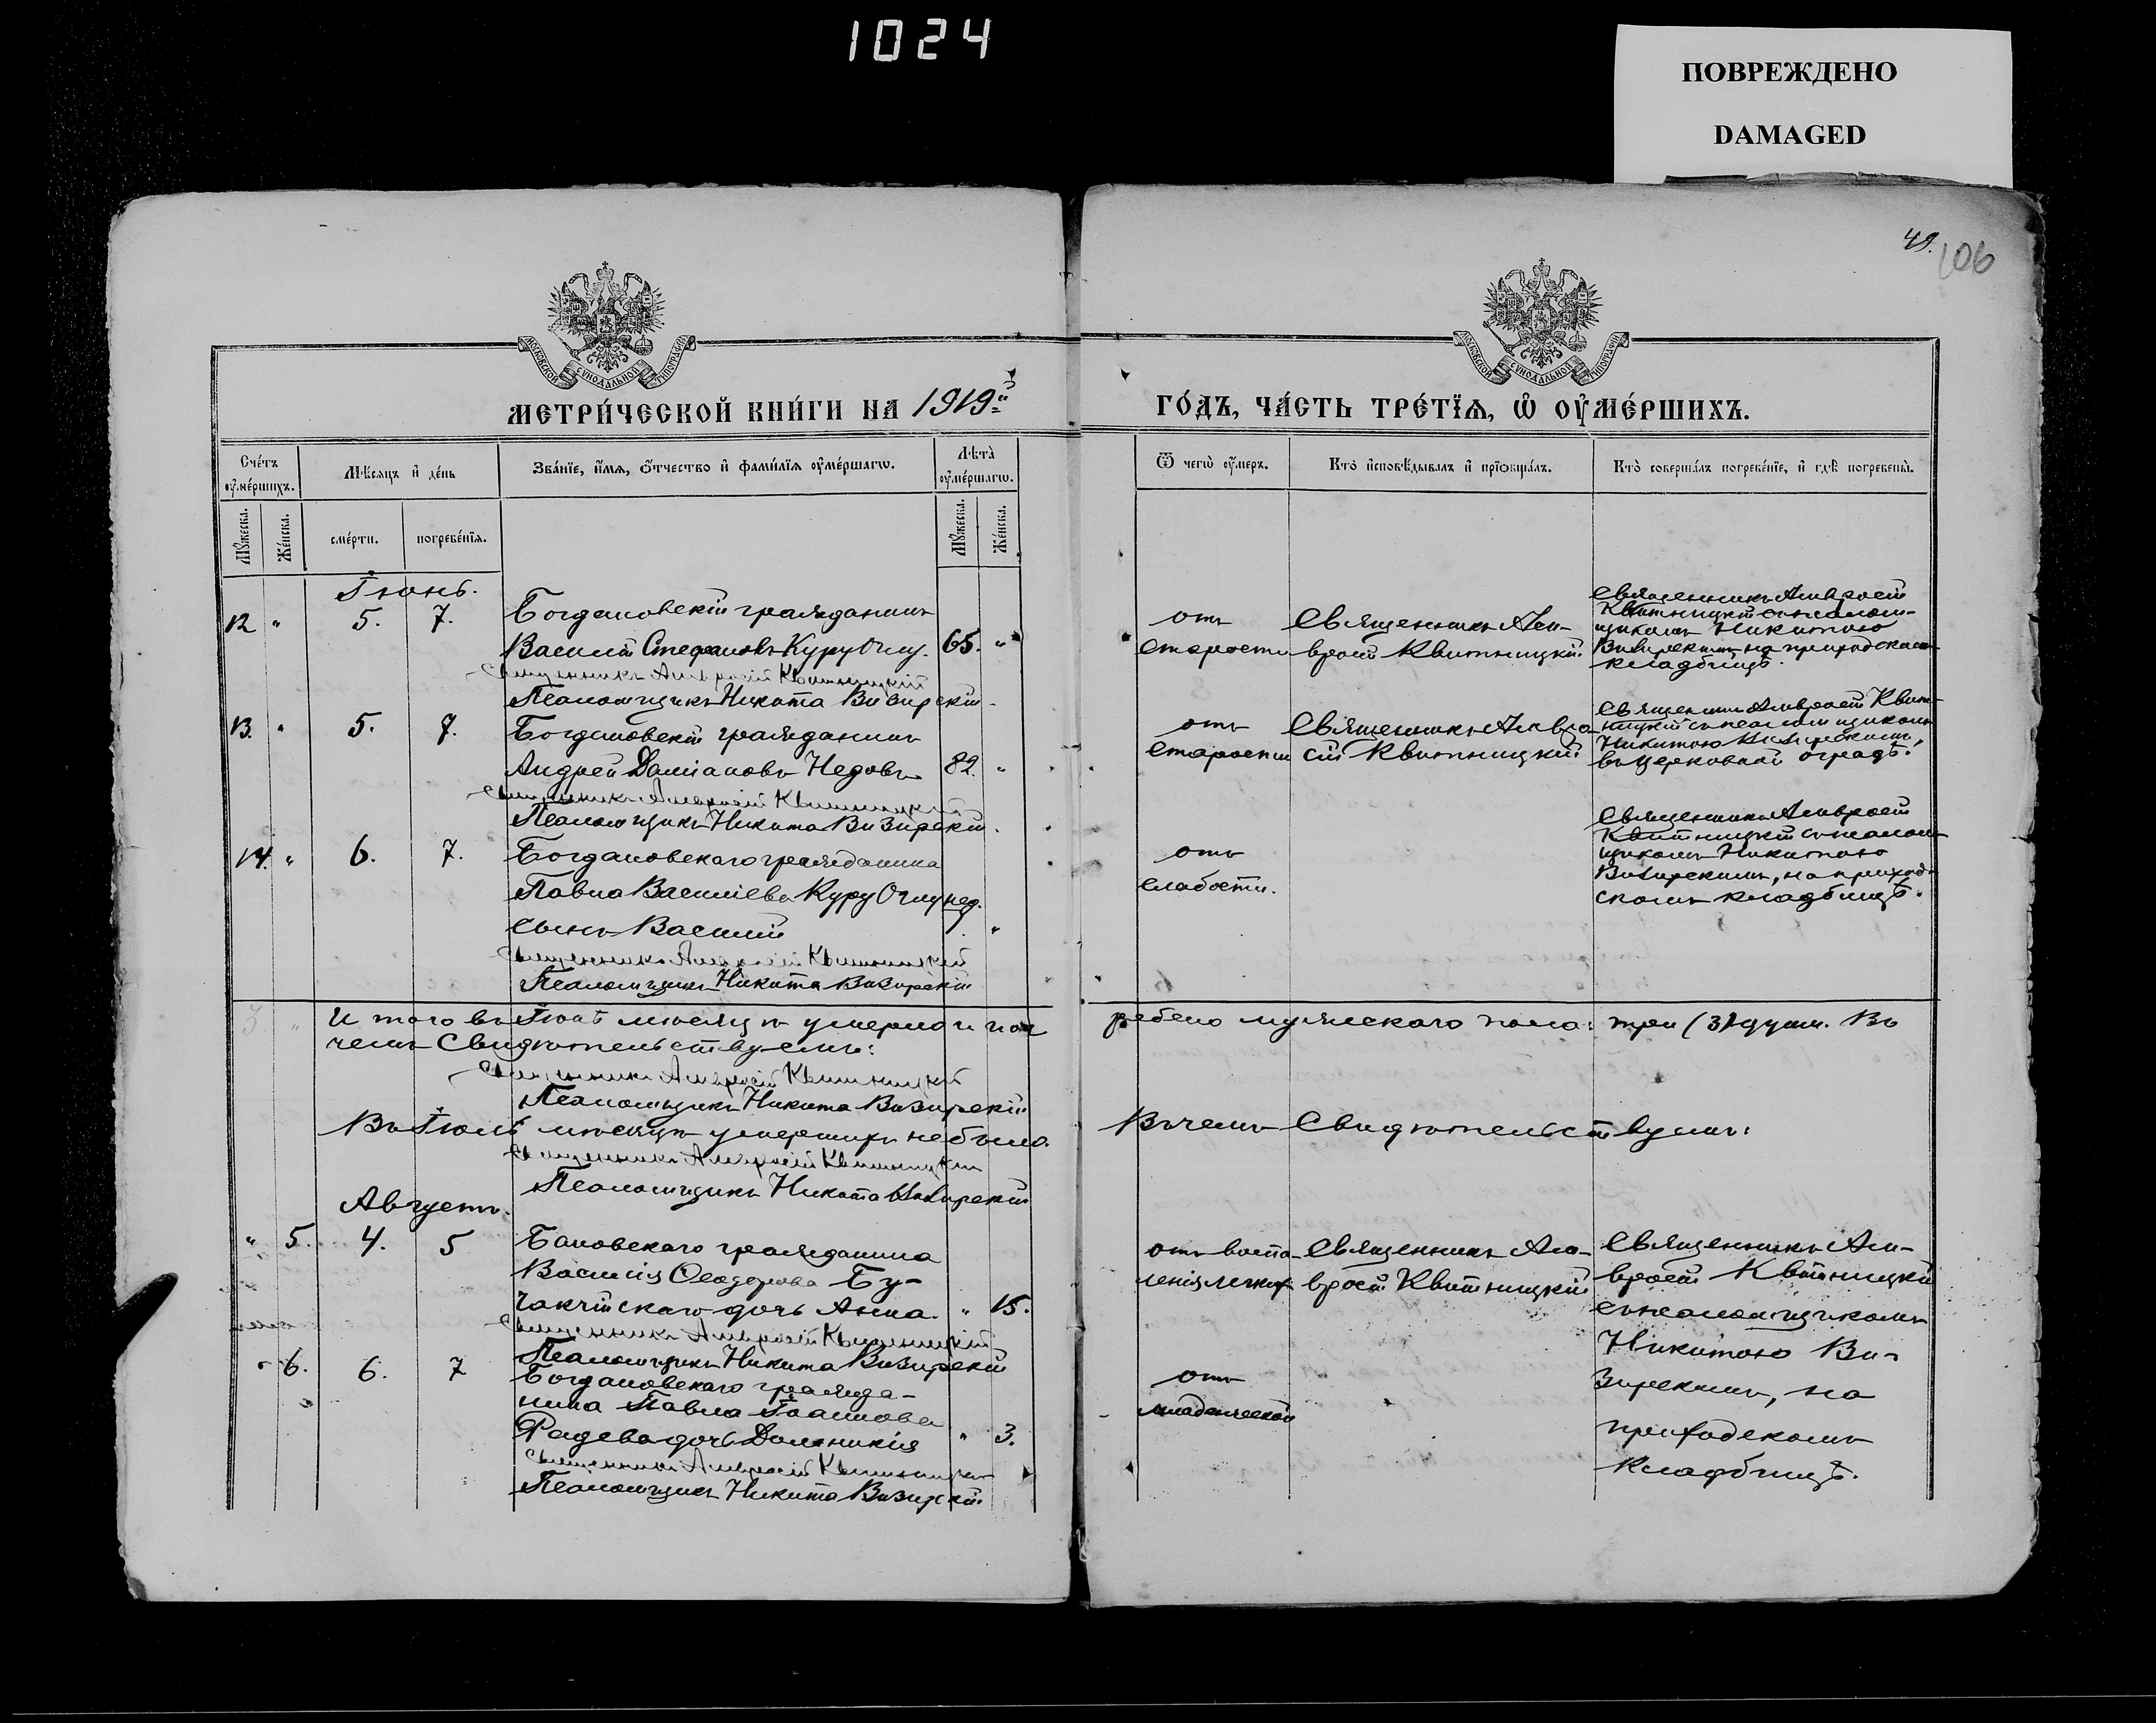 1024
ПОВРЕЖДЕНО
DAMAGED
49.
106
МОСКОВСКОЙ СѴНОДАЛЬНОЙ ТИПОГРАФІИ
МОСКОВСКОЙ СѴНОДАЛЬНОЙ ТИПОГРАФІИ
МЕТРИ́ЧЕСКОЙ КНИ́ГИ НА 1919й
ГО́ДЪ, ЧА́СТЬ ТРЕ́ТЇѦ, Ѽ ОУ҆МЕ́РШИХЪ.
Сче́тъ оу҆ме́ршихъ.
Мѣ́сяцъ и҆ де́нь
Зва́нїе, и҆́мѧ, ѻ҆́тчество и҆ фами́лїѧ оу҆ме́ршагѡ.
Лѣ̀та̀ оу҆ме́ршагѡ.
Ѿ чегѡ̀ оу҆́меръ.
Кто̀ и҆сповѣ́дывалъ и҆ прїѡбща́лъ.
Кто̀ соверша́лъ погребе́нїе, и҆ гдѣ̀ погребены̀.
Мꙋ́жеска.
Же́нска.
сме́рти.
погребе́нїѧ.
Мꙋ́жеска.
Же́нска.
Іюнь.
12 " 5. 7. Богдановскій гражданинъ
Василій Стефановъ Куру Оглу. 65. "
Священникъ Амвросій Квитницкій
Псаломщикъ Никита Визирскій
отъ
старости
Священникъ Ам-
вросій Квитницкій
Священникъ Амвросій
Квитницкій съ псалом-
щикомъ Никитою
Визирскимъ на приходскомъ
кладбищѣ.
13. " 5. 7. Богдановскій гражданинъ
Андрей Даміановъ Недовъ 82. "
Священникъ Амвросій Квитницкій
Псаломщикъ Никита Визирскій.
отъ
старости
Священникъ Амвро-
сій Квитницкій
Священникъ Амвросій Квит-
ницкій съ псаломщикомъ
Никитою Визирскимъ,
въ церковной оградѣ.
14. " 6. 7. Богдановскаго гражданина
Павла Василіева Куру Оглу нед.
сынъ Василій "
Священникъ Амвросій Квитницкій
Псаломщикъ Никита Визирскій
отъ
слабости.
Священникъ Амвросій
Квитницкій съ псалом-
щикомъ Никитою
Визирскимъ, на приход-
скомъ кладбищѣ.
3 " Итого въ Іюнѣ мѣсяцѣ умерло и пог
ребено мужескаго пола: три (3) душ. Въ
чемъ Свидѣтельствуемъ:
Священникъ Амвросій Квитницкій
Псаломщикъ Никита Визирскій
Въ Іюлѣ мѣсяцѣ умершихъ не было.
Въ чемъ Свидѣтельствуемъ:
Священникъ Амвросій Квитницкій
Псаломщикъ Никита Визирскій
Августъ.
" 5. 4. 5 Бановскаго гражданина
Василія Ѳеодорова Бу-
чакчійскаго дочь Анна. " 15.
Священникъ Амвросій Квитницкій
Псаломщикъ Никита Визирскій
отъ воспа-
ленія легких
Священникъ Ам-
вросій Квитницкій
Священникъ Ам-
вросій Квитницкій
съ псаломщикомъ
Никитою Ви-
зирскимъ, на
приходскомъ
кладбищѣ.
" 6. 6. 7 Богдановскаго гражда-
нина Павла Іоаннова
Радева дочь Домникія " 3.
Священникъ Амвросій Квитницкій
Псаломщикъ Никита Визирскій
отъ
младенческой